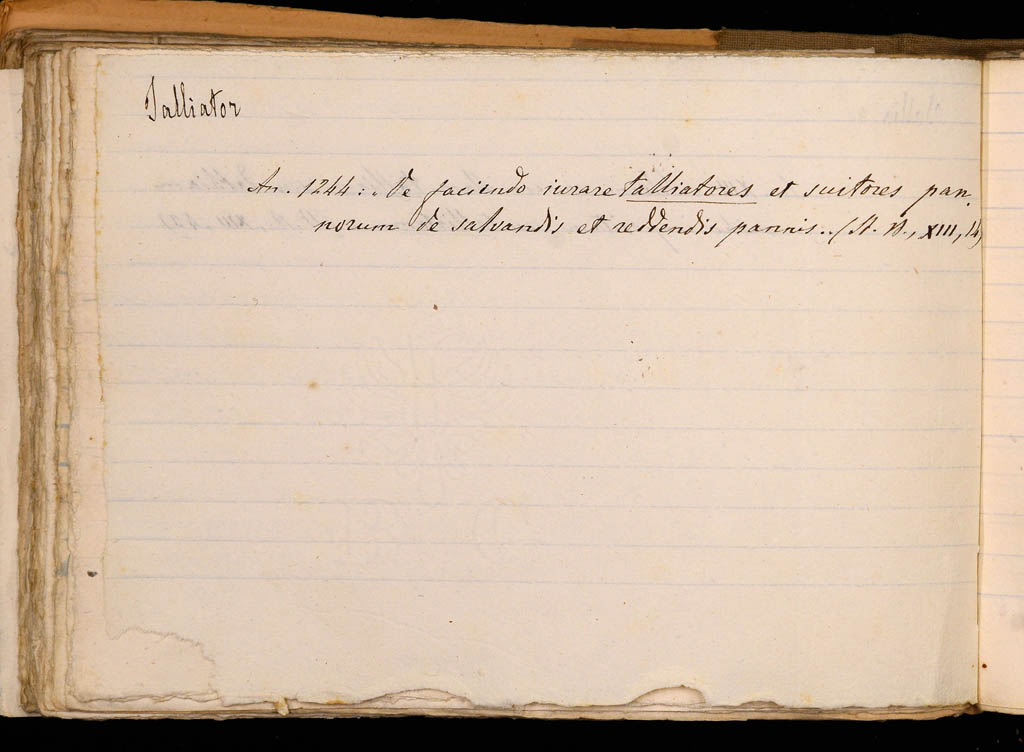 Talliator
An. 1244: De faciendo iurare talliatores et suitores pan-
norum de salvandis et reddendis pannis.. (St. B., XIII, 14)